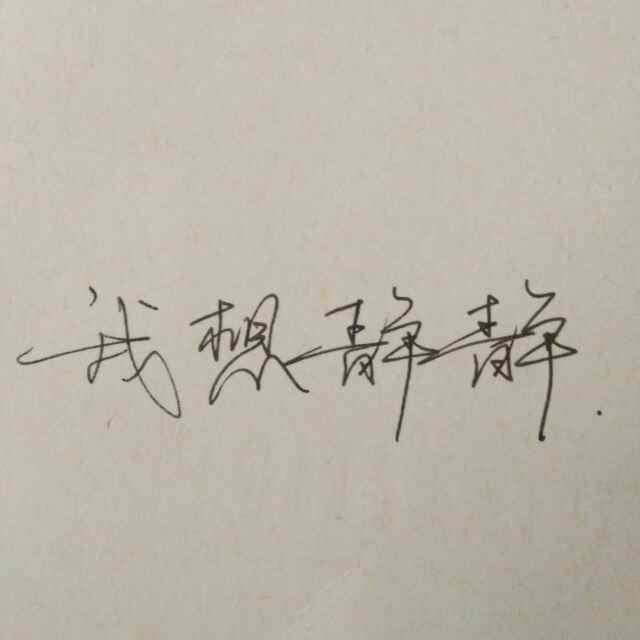 我想静静.